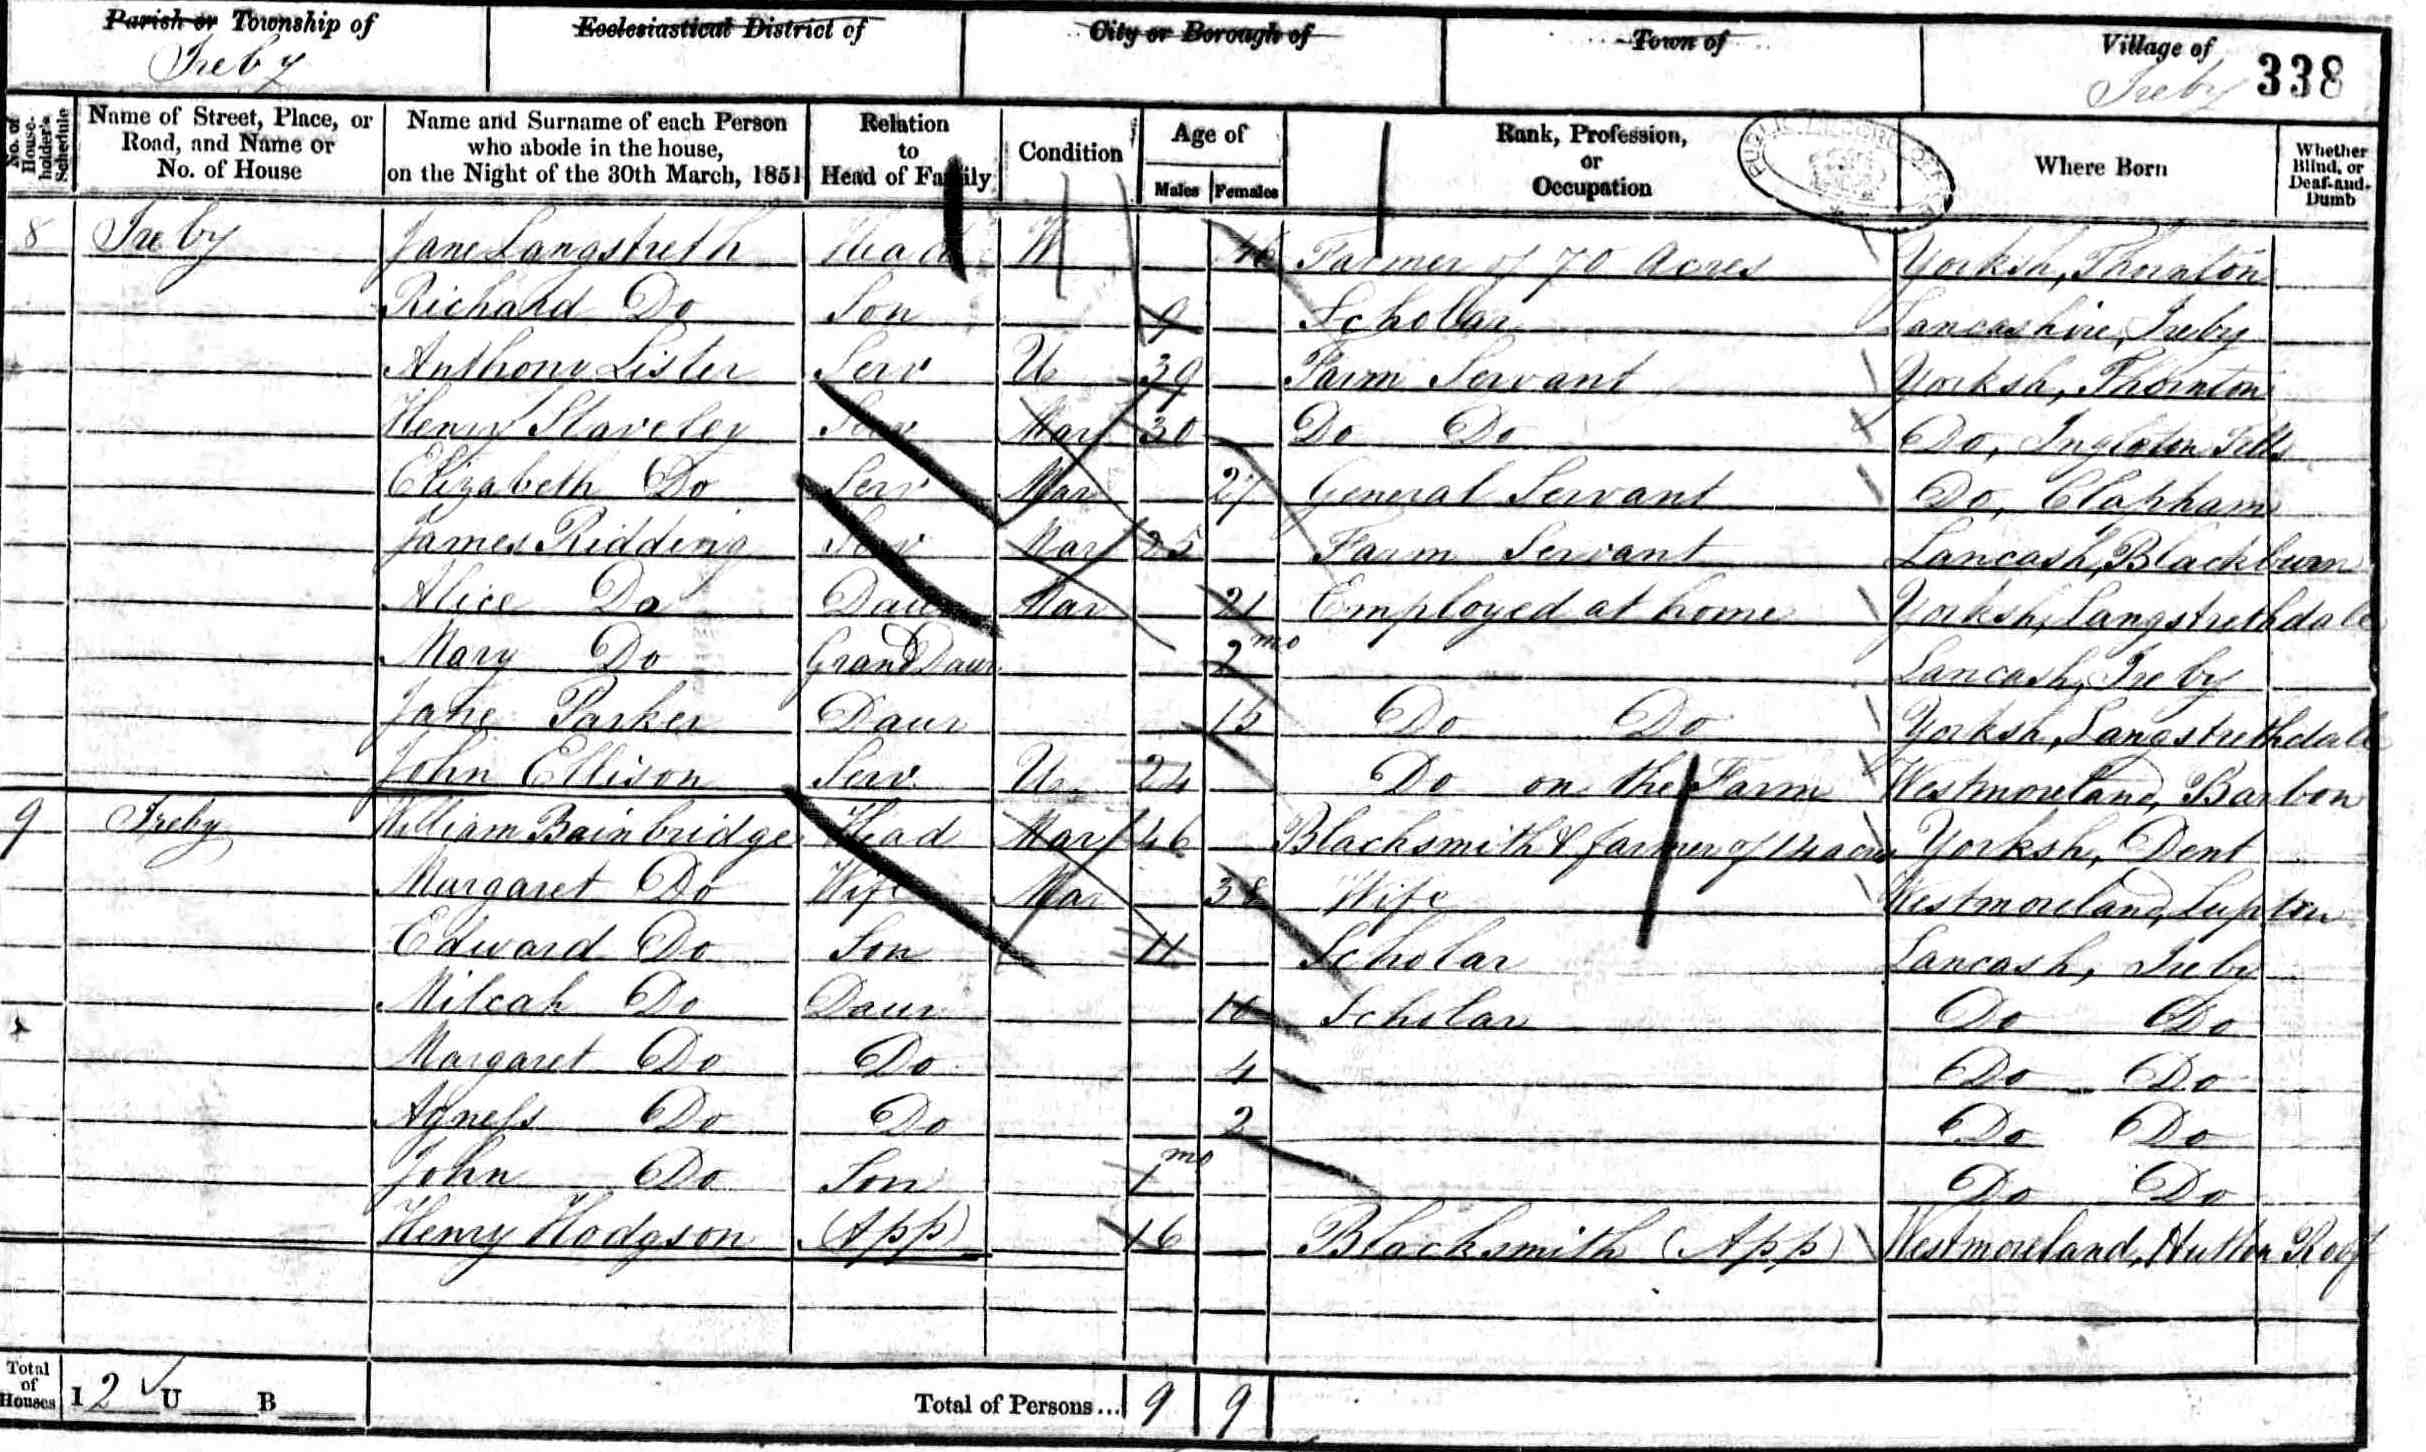 Parish or Township of
Ireby
Ecclesiastical District of
City or Borough of
Town of
Village of
Ireby
338
No. of House-holder's Schedule
Name of Street, Place, or Road, and Name or No. of House
Name and Surname of each Person who abode in the house, on the Night of the 30th March, 1851
Relation to Head of Family
Condition
Age of
Males Females
Rank, Profession, or Occupation
PUBLIC RECORD OFFICE
Where Born
Whether Blind, or Deaf-and-Dumb
8 Ireby Jane Langstreth Head W 46 Farmer of 70 Acres Yorksh, Thornton
Richard Do Son 9 Scholar Lancashire, Ireby
Anthony Lister Serv U 39 Farm Servant Yorksh, Thornton
Henry Staveley Serv Mar 30 Do Do Do, Ingleton Fells
Elizabeth Do Serv Mar 27 General Servant Do, Clapham
James Ridding Serv Mar 25 Farm Servant Lancash, Blackburn
Alice Do Daur Mar 21 Employed at home Yorksh, Langstrethdale
Mary Do Grand Daur 2 mo Lancash, Ireby
Jane Parker Daur 15 Do Do Yorksh, Langstrethdale
John Ellison Serv U 24 Do on the Farm Westmoreland, Barbon
9 Ireby William Bainbridge Head Mar 46 Blacksmith & farmer of 14 acres Yorksh, Dent
Margaret Do Wife Mar 38 Wife Westmoreland, Lupton
Edward Do Son 11 Scholar Lancash, Ireby
Milcah Do Daur 10 Scholar Do Do
Margaret Do Do 4 Do Do
Agness Do Do 2 Do Do
John Do Son 1 mo Do Do
Henry Hodgson (App) 16 Blacksmith (App) Westmoreland, Hutton Roof
Total of Houses I 2 U B Total of Persons... 9 9